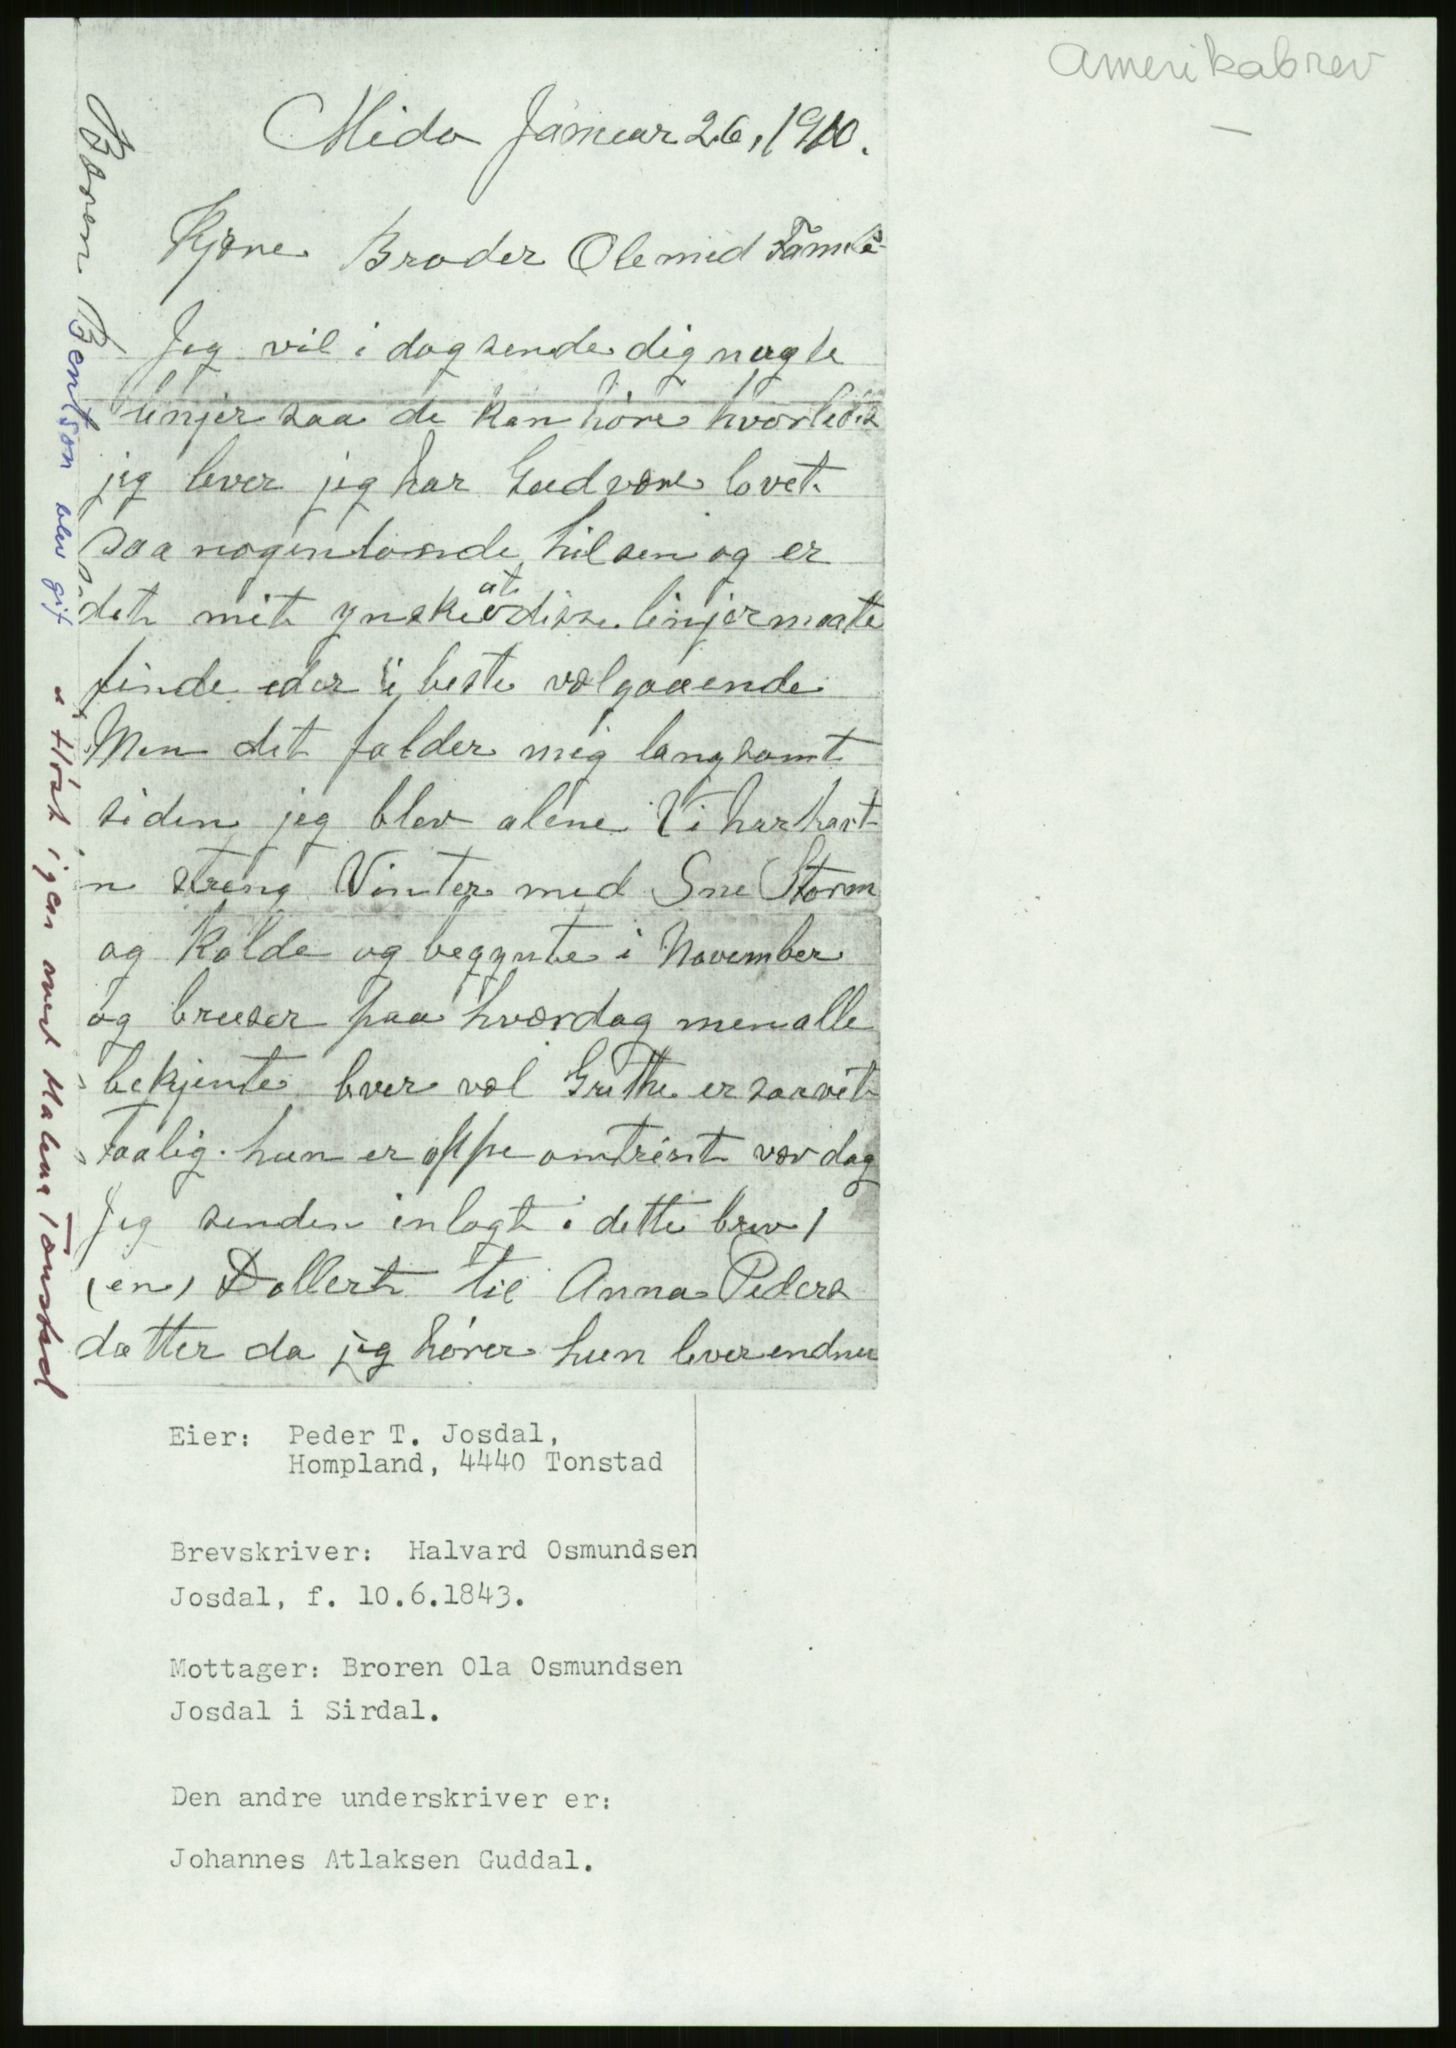 Amerikabrev
Mida Januar 26, 1910.
Kjære Broder Ole med Familie
Jeg vil i dag sende dig nogle
linjer saa de kan høre hvorledes
jeg lever jeg har Gud være lovet
saa nogenlunde hilsen og er
det mit ynske at disse linjer maate
finde eder i beste velgaaende
Men det falder mig langsomt
siden jeg blev alene Vi har hat
n streng Vinter med Sne Storm
og Kolde og begynte i November
og bruser paa hverdag men alle
bekjente lever vel Grethe er saavit
taalig. hun er oppe omtrent vær dag
Jeg sender inlagt i dette brev 1
(en) Dollert til Anna Peders
datter da jeg hører hun lever endnu
Bæren Bentson blev gift i Høst igen med Malena Tonstad
Eier: Peder T. Josdal,
Hompland, 4440 Tonstad
Brevskriver: Halvard Osmundsen
Josdal, f. 10.6.1843.
Mottager: Broren Ola Osmundsen
Josdal i Sirdal.
Den andre underskriver er:
Johannes Atlaksen Guddal.